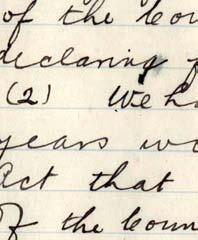 of the Cou
declaring
(2) We ha
years w
Act that
of the Coun